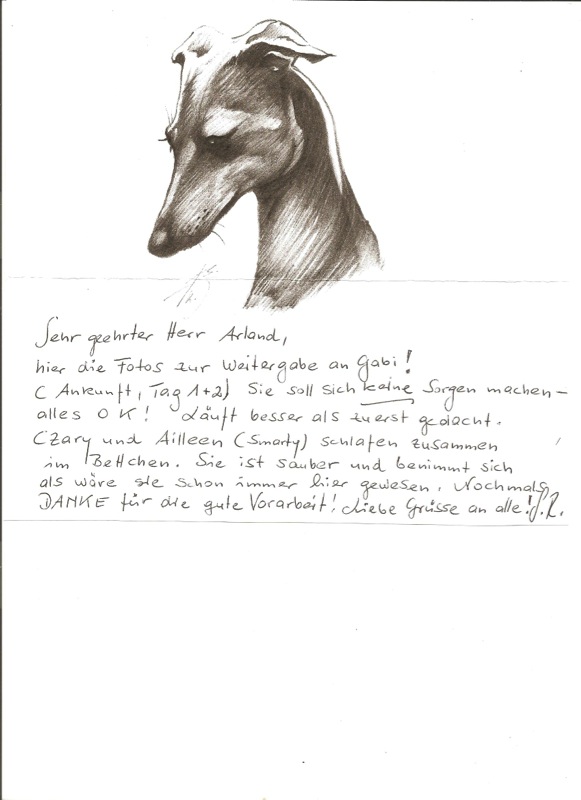 Sehr geehrter Herr Arland,
hier die Fotos zur Weitergabe an Gabi!
( Ankunft, Tag 1+2) Sie soll sich keine Sorgen machen –
alles OK! Läuft besser als zuerst gedacht.
Czary und Ailleen (Smarty) schlafen zusammen
im Bettchen. Sie ist sauber und benimmt sich
als wäre sie schon immer hier gewesen. Nochmals
DANKE für die gute Vorarbeit! Liebe Grüsse an alle!